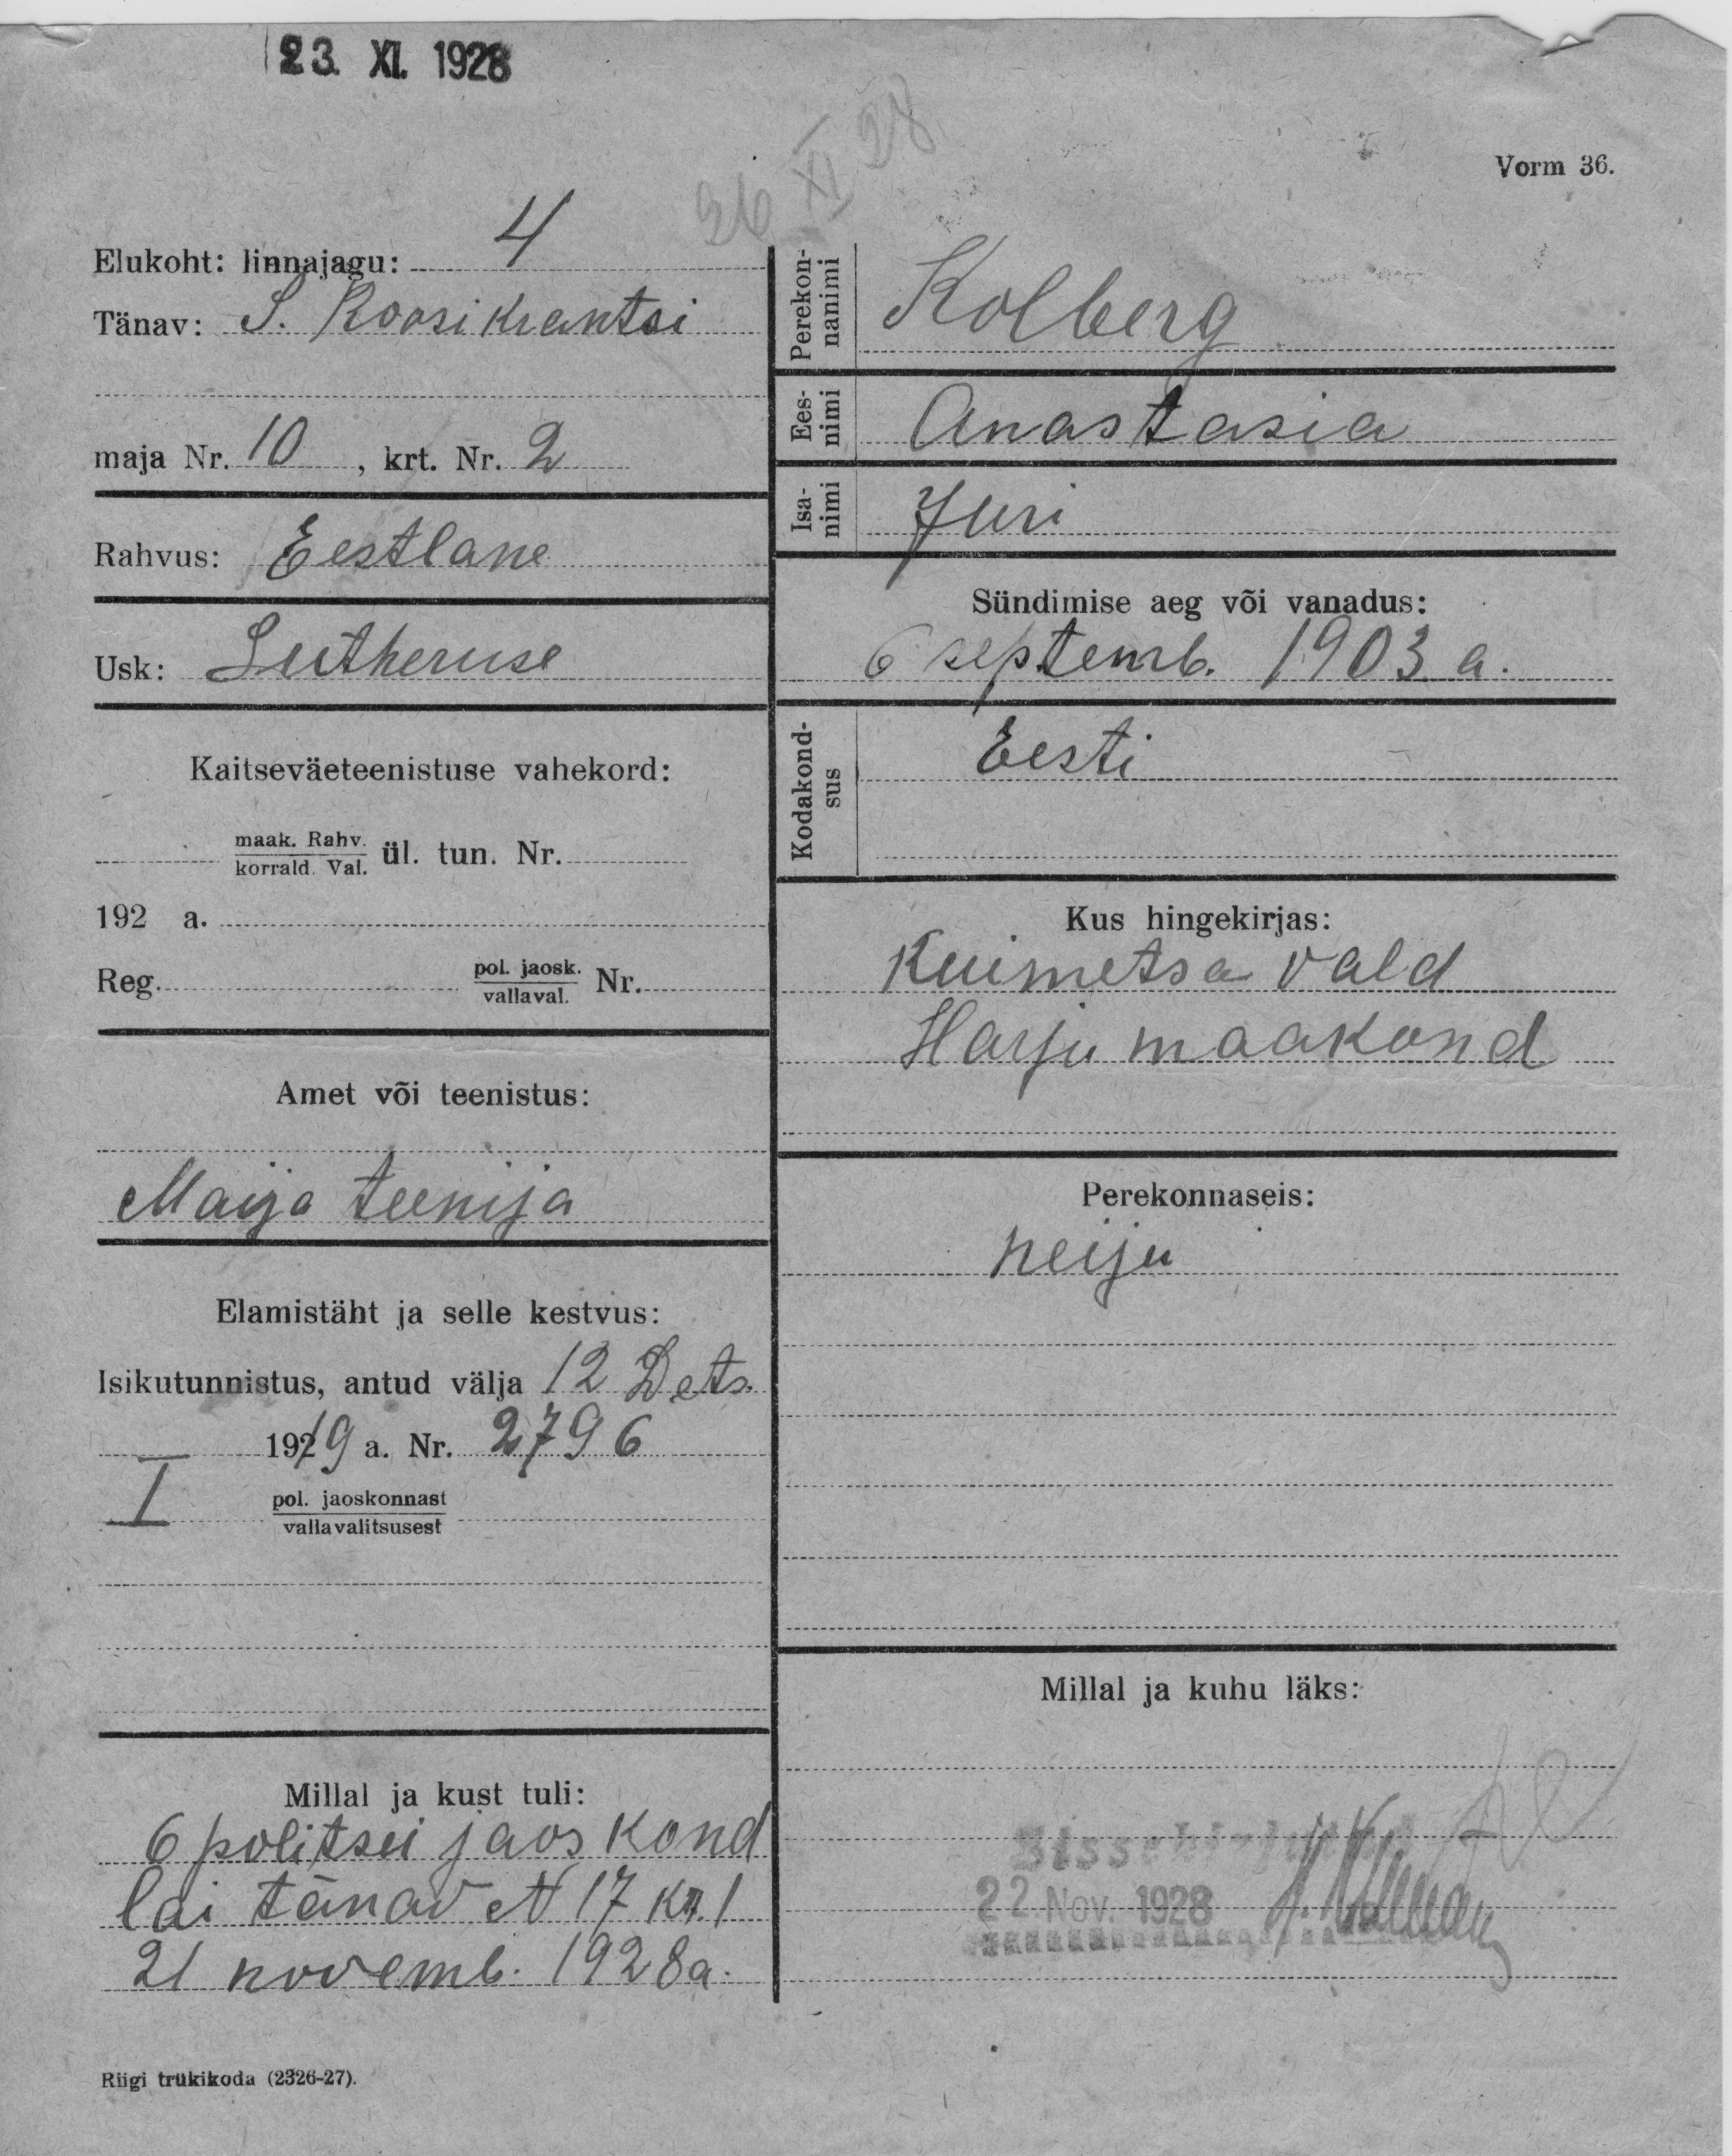 23. XI. 1928
26 XI 28
Vorm 36.
Elukoht: linnajagu: 4
Tänav: S. Roosikrantsi
maja Nr. 10, krt. Nr. 2
Rahvus: Eestlane
Usk: Lutheruse
Kaitseväeteenistuse vahekord:
maak. Rahv.
korrald. Val. ül. tun. Nr.
192 a.
Reg. pol. jaosk.
vallaval. Nr.
Amet või teenistus:
Maija teenija
Elamistäht ja selle kestvus:
Isikutunnistus, antud välja 12 Dets.
1919 a. Nr. 2796
I pol. jaoskonnast
vallavalitsusest
Millal ja kust tuli:
6 politsei jaoskond
lai tänav N 17 kr. 1
21 novemb. 1928 a.
Riigi trükikoda (2326-27).
Perekon-
nanimi Kolberg
Ees-
nimi Anastasia
Isa-
nimi Juri
Sündimise aeg või vanadus:
6 septemb. 1903 a.
Kodakond-
sus Eesti
Kus hingekirjas:
Kuimetsa vald
Harju maakond
Perekonnaseis:
neiju
Millal ja kuhu läks:
22 Nov. 1928